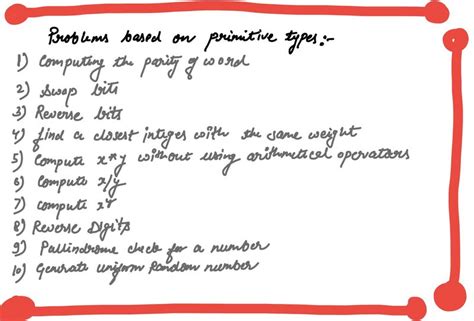 Problems based on primitive types:-
1) Computing the parity of word
2) Swap bits
3) Reverse bits
4) find a closest integes with the same weight
5) Compute x*y without using arithmetical operators
6) Compute x/y
7) compute x^y
8) Reverse Digits
9) Pallindrome check for a number
10) Generate uniform Random number